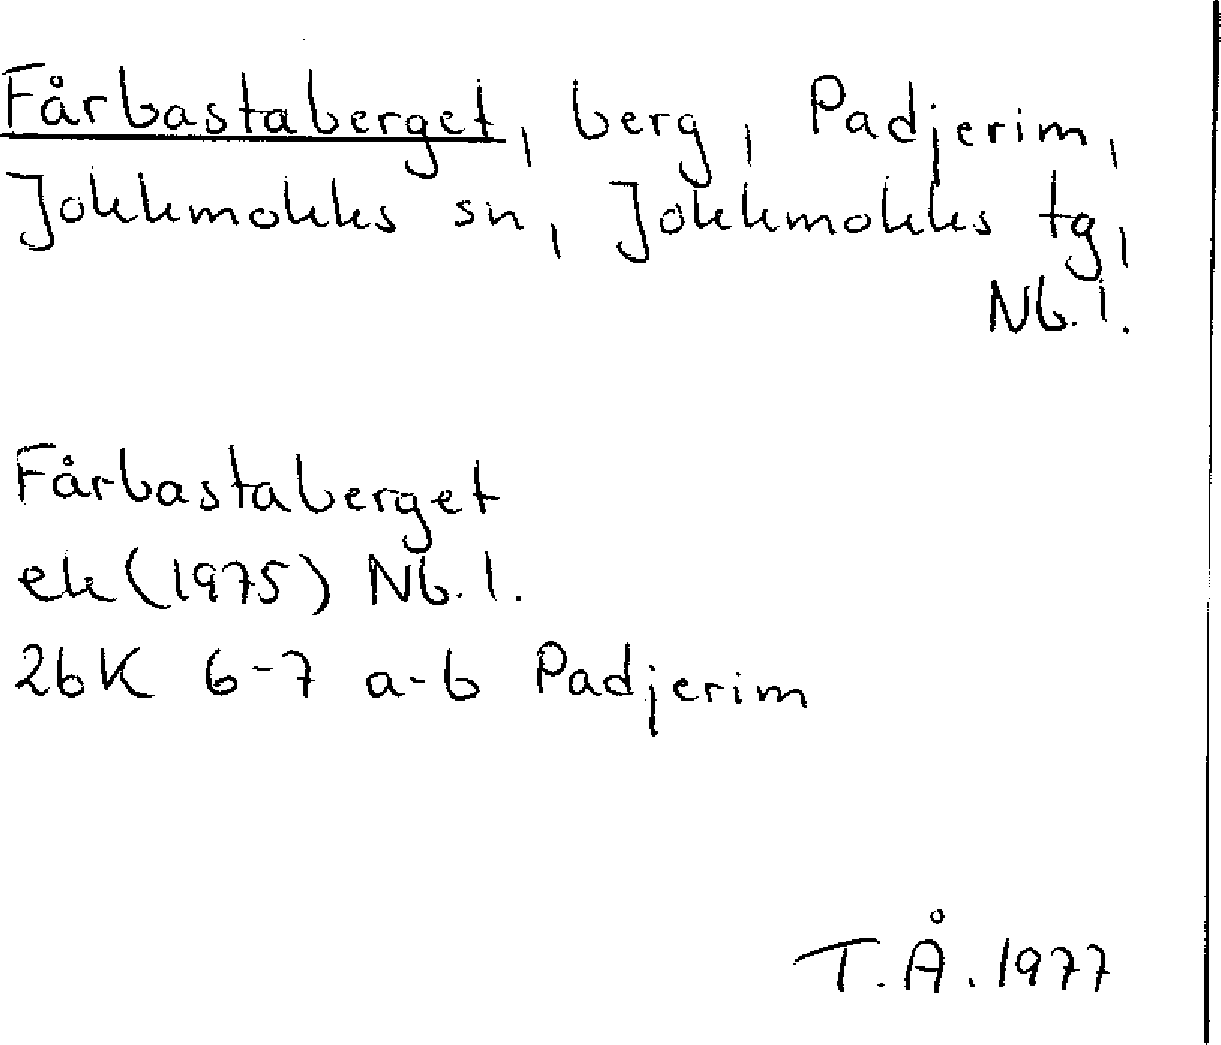 Fårbastaberget, berg, Padjerim,
Jokkmokks sn, Jokkmokks tg,
Nb. l.
Fårbastaberget
ek (1975) Nb. l.
26K 6-7 a-b Padjerim
T. Å. 1977